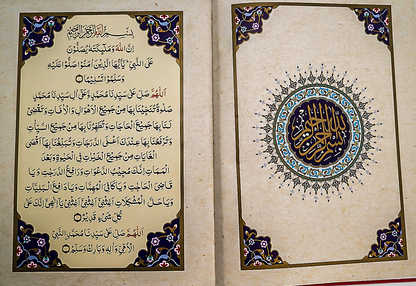 بِسْمِ اللّٰهِ الرَّحْمٰنِ الرَّحِيمِ
اِنَّ اللّٰهَ وَمَلٰٓئِكَتَهُ يُصَلُّونَ
عَلَى النَّبِيِّ يَٓا اَيُّهَا الَّذِينَ اٰمَنُوا صَلُّوا عَلَيْهِ
وَسَلِّمُوا تَسْلِيمًا
اَللّٰهُمَّ صَلِّ عَلٰى سَيِّدِنَا مُحَمَّدٍ وَعَلٰٓى اٰلِ سَيِّدِنَا مُحَمَّدٍ
صَلٰوةً تُنْجِينَا بِهَا مِنْ جَمِيعِ الْاَهْوَالِ وَالْاٰفَاتِ وَتَقْضِي
لَنَا بِهَا جَمِيعَ الْحَاجَاتِ وَتُطَهِّرُنَا بِهَا مِنْ جَمِيعِ السَّيِّئَاتِ
وَتَرْفَعُنَا بِهَا عِنْدَكَ اَعْلَى الدَّرَجَاتِ وَتُبَلِّغُنَا بِهَا اَقْصَى
الْغَايَاتِ مِنْ جَمِيعِ الْخَيْرَاتِ فِي الْحَيٰوةِ وَبَعْدَ
الْمَمَاتِ اِنَّكَ مُجِيبُ الدَّعَوَاتِ وَرَافِعُ الدَّرَجَاتِ وَيَا
قَاضِيَ الْحَاجَاتِ وَيَا كَافِيَ الْمُهِمَّاتِ وَيَا دَافِعَ الْبَلِيَّاتِ
وَيَا حَلَّ الْمُشْكِلَاتِ اَغِثْنِي اَغِثْنِي اَغِثْنِي يَٓا اِلٰهِي اِنَّكَ عَلٰى
كُلِّ شَيْءٍ قَدِيرٌ
اَللّٰهُمَّ صَلِّ عَلٰى سَيِّدِنَا مُحَمَّدٍ النَّبِيِّ
الْاُمِّيِّ وَاٰلِهِ وَبَارِكْ وَسَلِّمْ
بسم الله الرحمن الرحيم